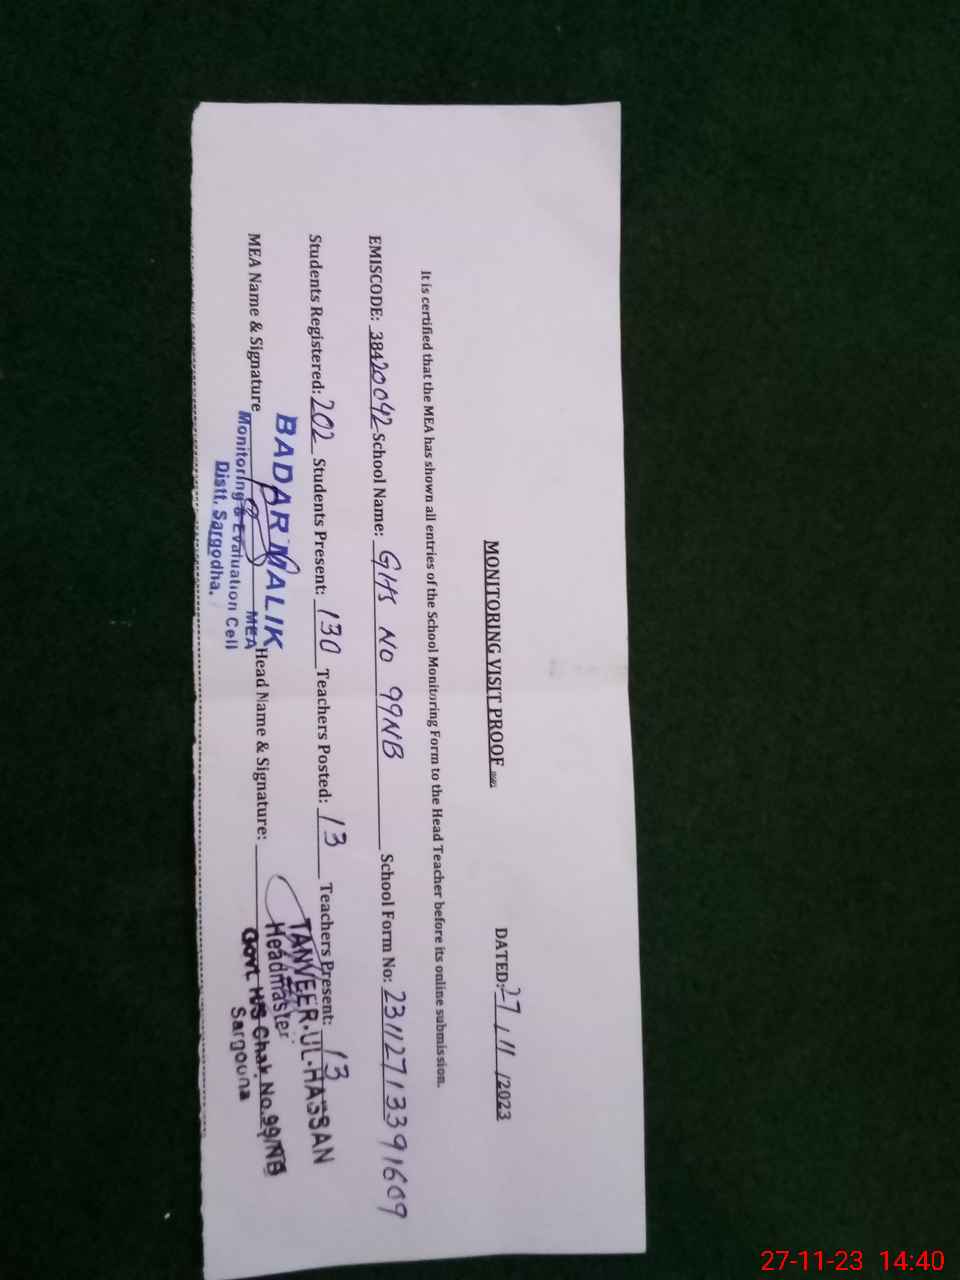 MONITORING VISIT PROOF
DATED: 27 / 11 /2023
It is certified that the MEA has shown all entries of the School Monitoring Form to the Head Teacher before its online submission.
EMISCODE: 38420042 School Name: GHS NO 99NB School Form No: 23112713391609
Students Registered: 202 Students Present: 130 Teachers Posted: 13 Teachers Present: 13
MEA Name & Signature Head Name & Signature:
BADAR MALIK
MEA
Monitoring & Evaluation Cell
Distt. Sargodha.
TANVEER-UL-HASSAN
Headmaster
Govt. H/S Chak No.99/NB
Sargodha
27-11-23 14:40